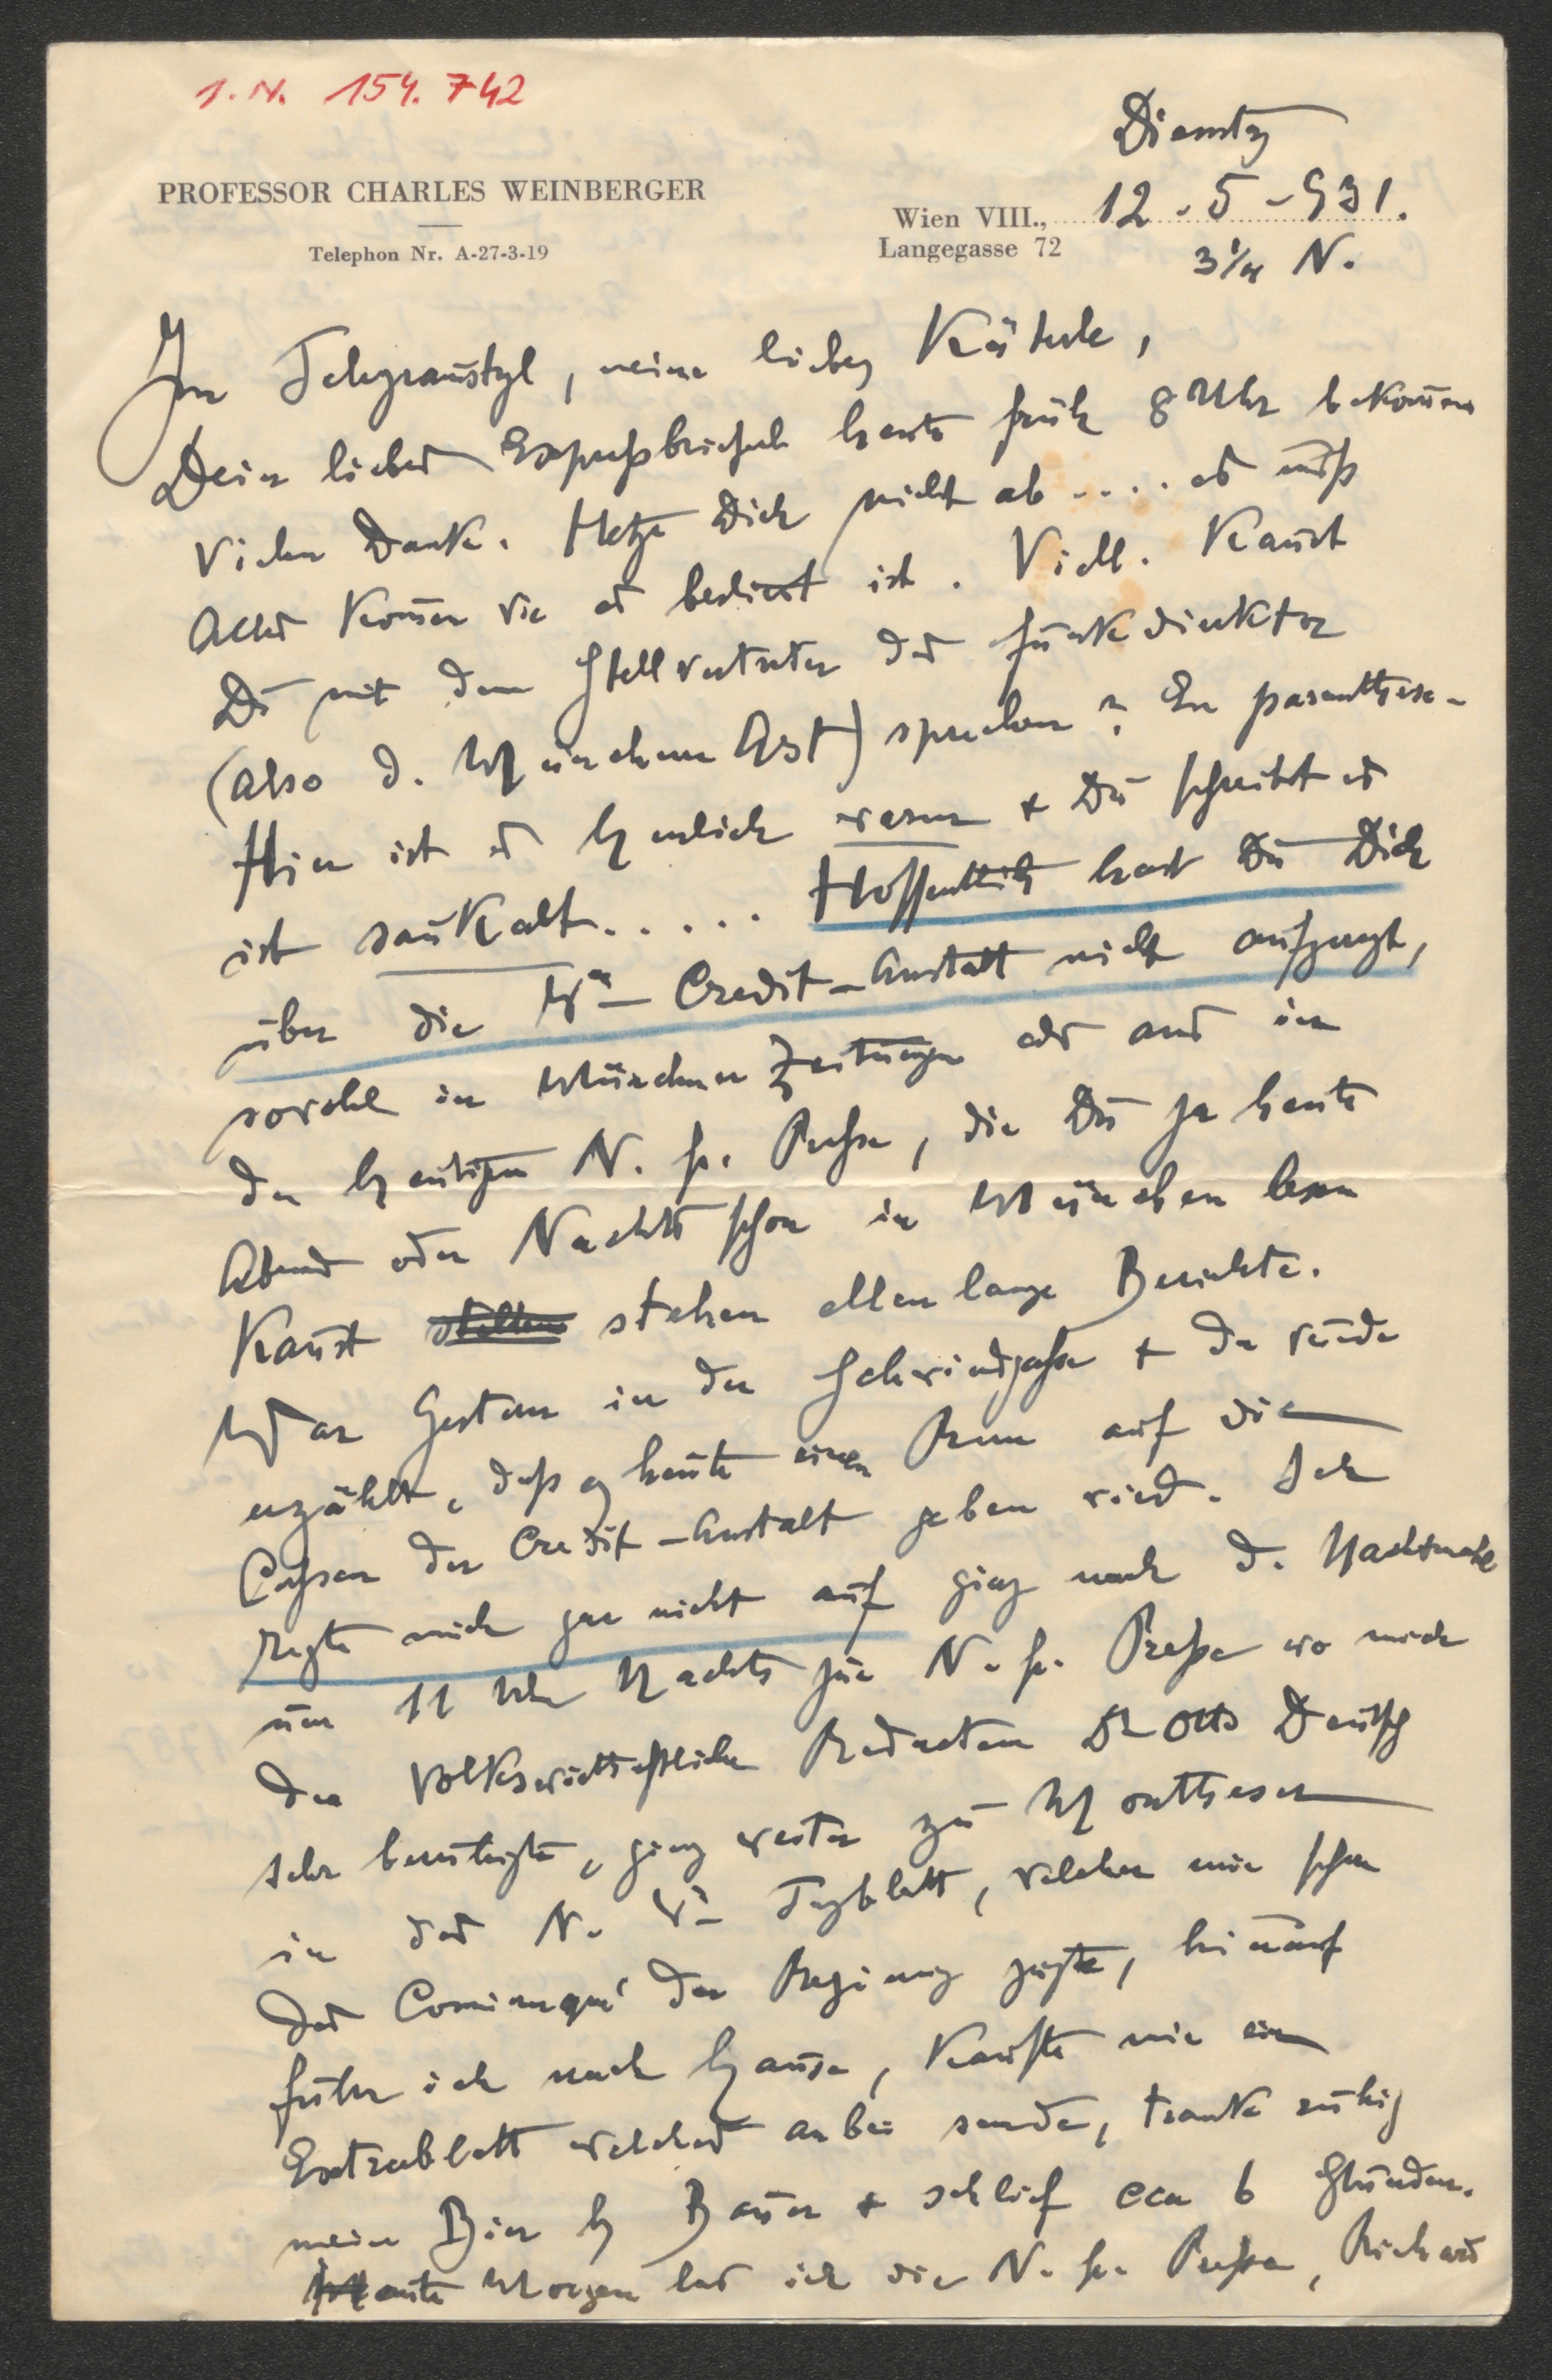 I. N. 154.742
PROFESSOR CHARLES WEINBERGER
Telephon Nr. A-27-3-19
Dienstag
Wien VIII., 12 - 5 - 931.
Langegasse 72
3¼ N.
Im Telegram̄styl, meine liebes
Dein liebes Expreßbrieferl heute früh 8 Uhr bekom̄en
Vielen Dank. Hetze Dich nicht ab .... es muß
Alles kom̄en wie es bestimt ist. Viell. Kan̄st
Du mit dem Stellvertreter des Funkdirektor
(also d. Münchener Art) sprechen? En parenthese -
Hier ist es herrlich warm + Du schreibst es
ist saukalt..... Hoffentlich hast Du Dich
über die Wr Credit-Anstalt nicht aufgeregt,
sowohl in Münchner Zeitungen als aus in
der heutigen N. fr. Preße, die Du ja heute
Abend oder Nachts schon in München lesen
Kan̄st stehen ellenlange Berichte.
War Gestern in der Schwindgaße + da wurde
erzählt, daß es heute einen Run auf die
Caßen der Credit-Anstalt geben wird. Ich
regte mich gar nicht auf ging nach d. Nachtmahl
um 11 Uhr Nachts zur N. fr. Preße wo mich
der Volkswirtschaftliche Redacteur Dr Otto Deutsch
sehr beruhigte, ging weiter zu
in das N. Wr Tagblatt, welcher mir schon
das Com̄uniqué der Regierung zeigte, hierauf
fuhr ich nach Hause, Kaufte mir ein
Extrablatt welches anbei sende, trank ruhig
mein Bier b Bauer + schlief cca 6 Stunden.
Heute Morgen las ich die N. fr. Preße, Richard